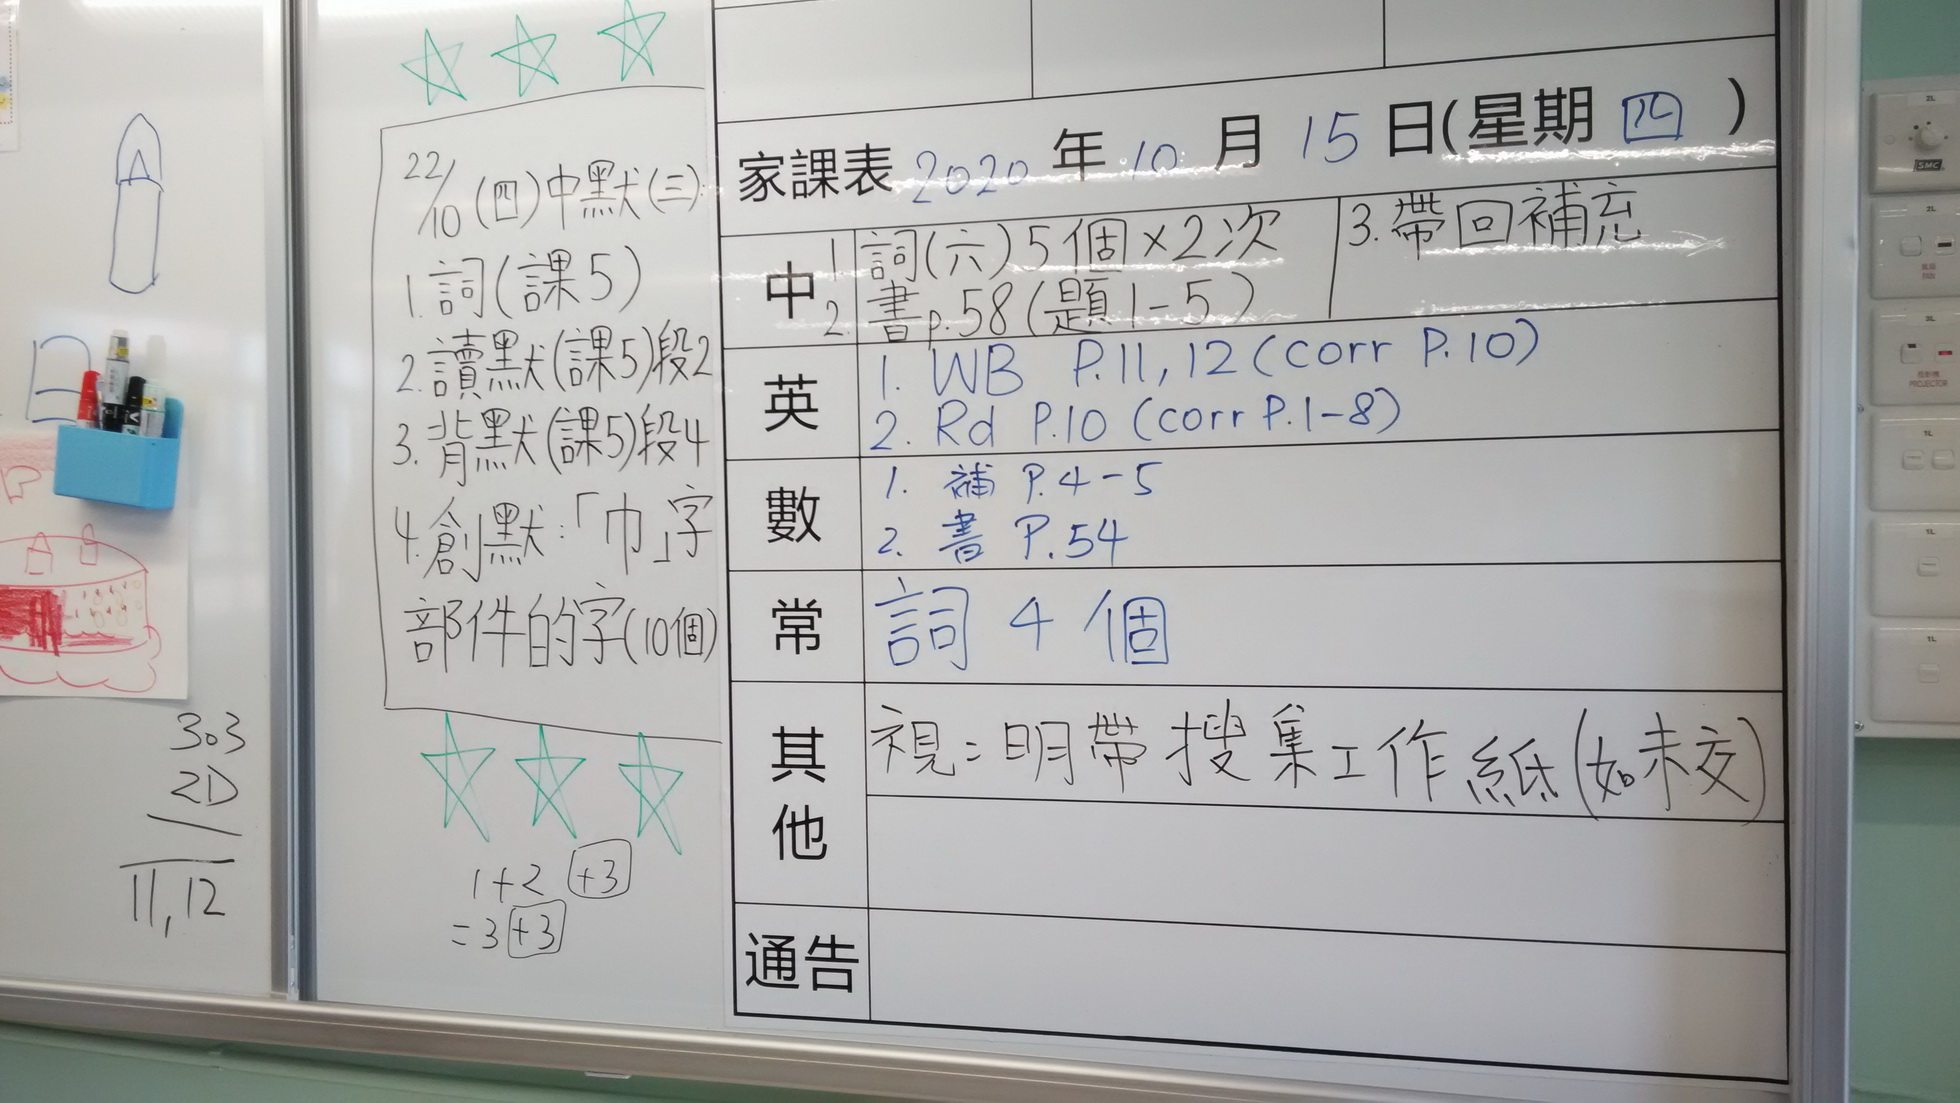 A
303
2D
11,12
22/10 (四) 中默(三)
1. 詞(課5)
2. 讀默(課5)段2
3. 背默(課5)段4
4. 創默:「巾」字
部件的字(10個)
1+2 +3
=3 +3
家課表 2020 年 10 月 15 日(星期 四 )
中
1. 詞(六) 5個×2次
2. 書p.58(題1-5)
3. 帶回補充
英
1. WB P.11, 12 (corr P.10)
2. Rd P.10 (corr P.1-8)
數
1. 補 P.4-5
2. 書 P.54
常
詞 4 個
其他
視:明帶搜集工作紙(如未交)
通告
2L
SMC
2L
3L
投影機
PROJECTOR
1L
1L
1L